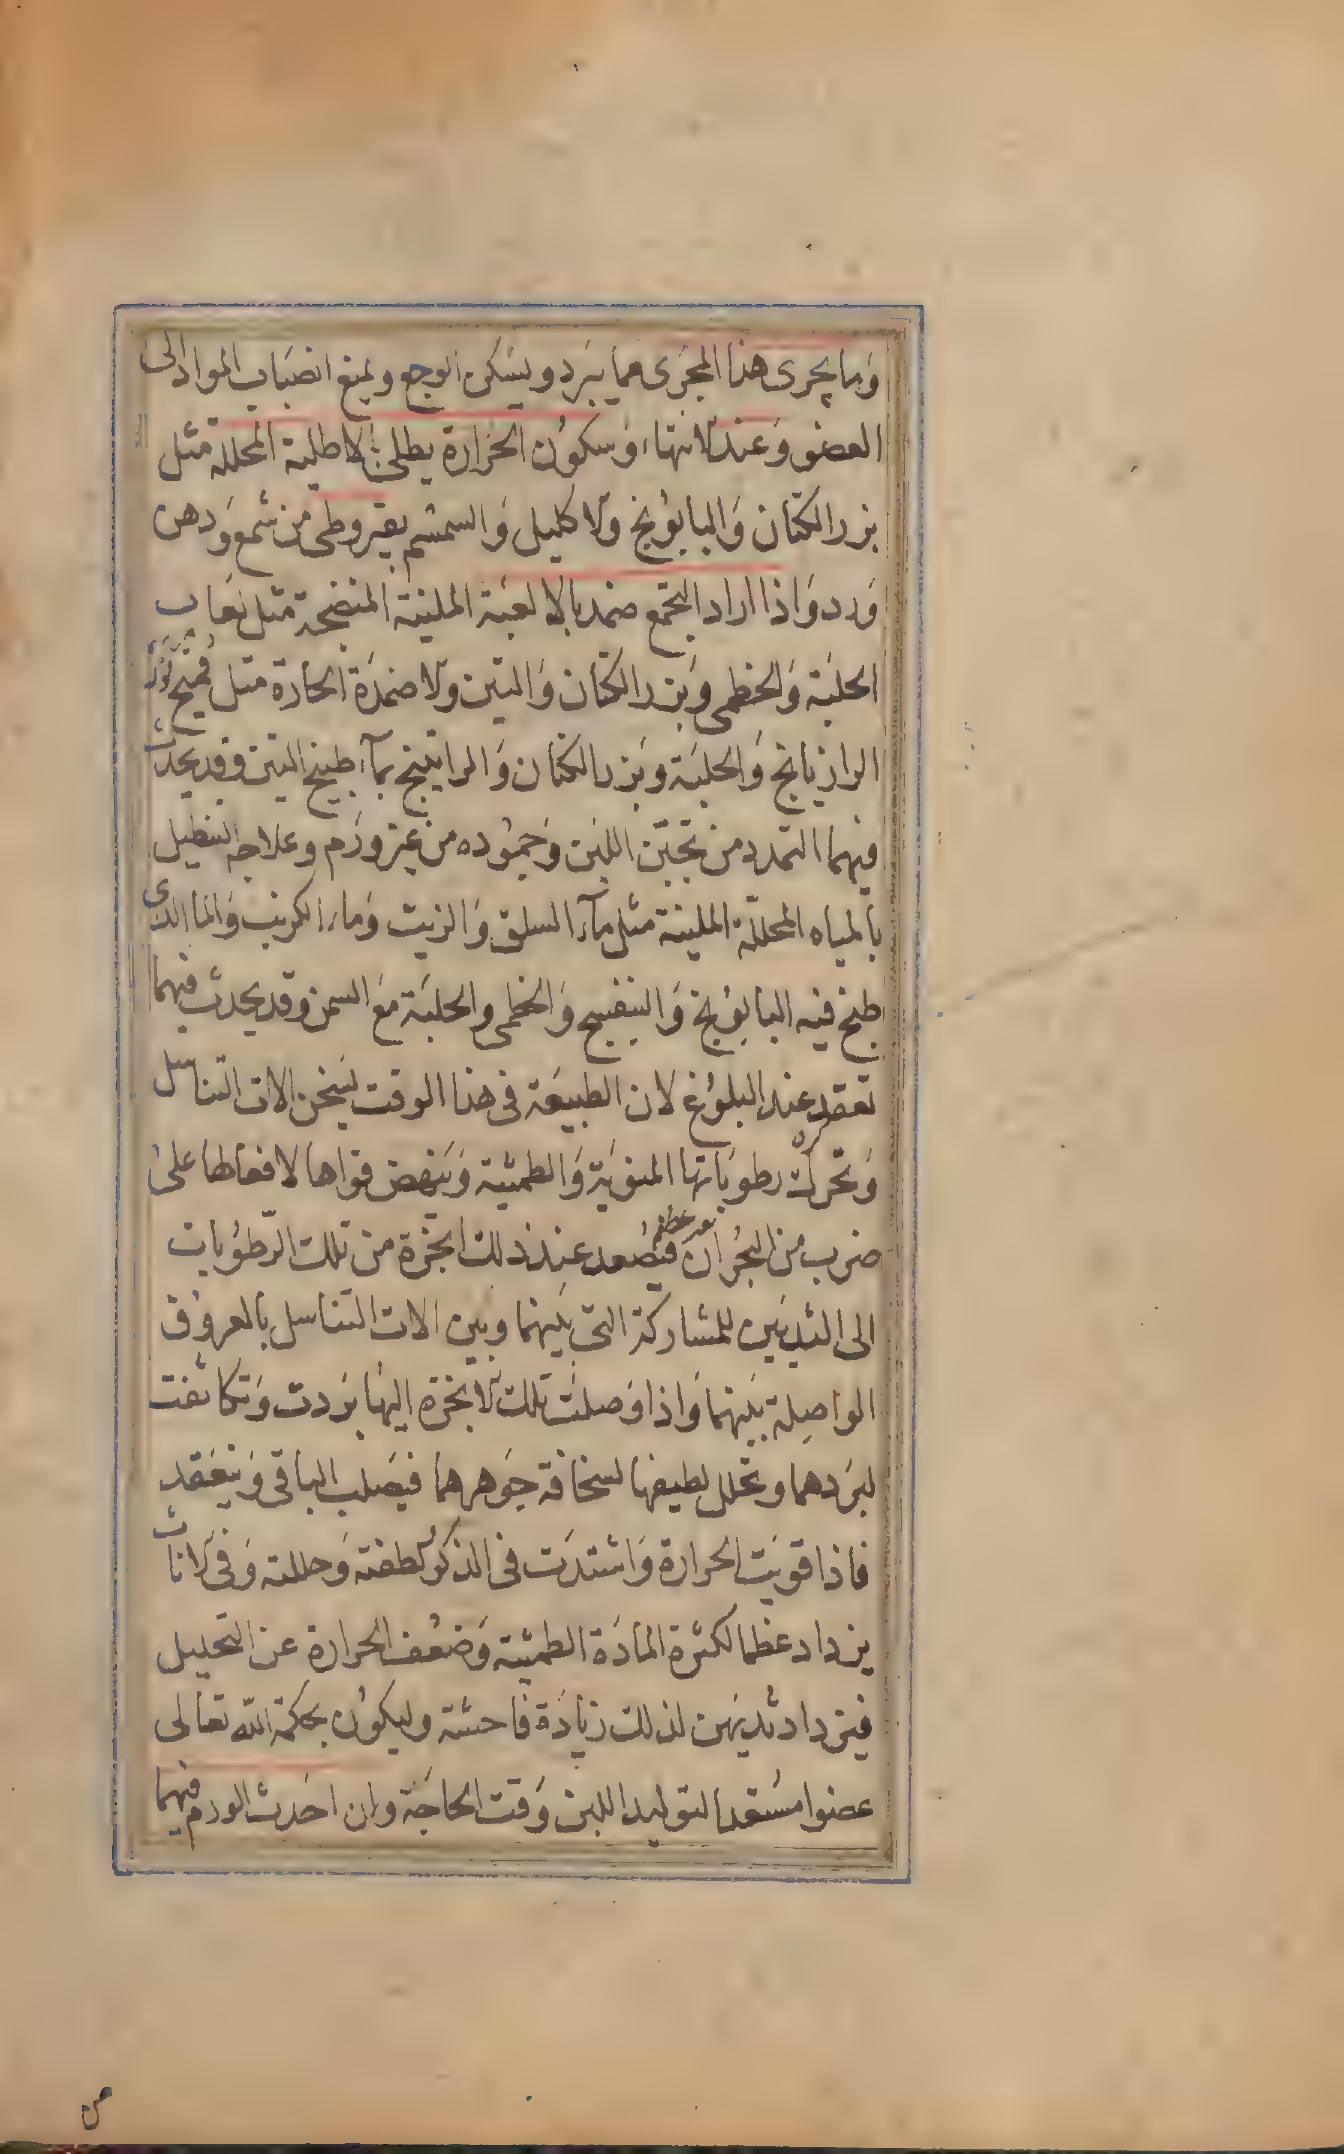 وما يجرى هذا المجرى مما يبرد ويسكن الوجع ويمنع انصباب المواد الى
العضو وعند الانتهاء وسكون الحرارة يطلى بالاطلية المحللة مثل
بزر الكتان والبابونج والاكليل والسمسم بقيروطى من شمع ودهن
ورد واذا اراد التجمع ضمد بالالعبة الملينة المنضجة مثل لعاب
الحلبة والخطمى وبزر الكتان والتين والاضمدة الحارة مثل قميح
الرازيانج والحلبة وبزر الكتان والراتينج بمآء طبيخ التين وقد يحدث
فيهما التمدد من تجبّن اللبن وجموده من غير ورم وعلاجه التنطيل
بالمياه المحللة الملينة مثل مآء السلق والزيت وماء الكرنب والما الذى
طبخ فيه البابونج والبنفسج والخطمى والحلبة مع السمن وقد يحدث فيهما
تعقد عند البلوغ لان الطبيعة فى هذا الوقت يسخن الات التناسل
وتحرك رطوباتها المنوية والطمثية وينهض قواها لافعالها على
ضرب من البحران فيصعد عند ذلك ابخرة من تلك الرطوبات
الى الثديين للمشاركة التى بينهما وبين الات التناسل بالعروق
الواصلة بينهما واذا وصلت تلك الابخرة اليها بردت وتكاثفت
لبردهما وتحلل لطيفها لسخافة جوهرهما فيصلب الباقى وينعقد
فاذا قويت الحرارة واشتدت فى الذكور لطفته وحللته وفى الاناث
يزداد عظما لكثرة المادة الطمثية وضعف الحرارة عن التحليل
فيزداد ثديهن لذلك زيادة فاحشة وليكون بحكمة الله تعالى
عضوا مستعدا لتوليد اللبن وقت الحاجة وان احدث الورم فيهما